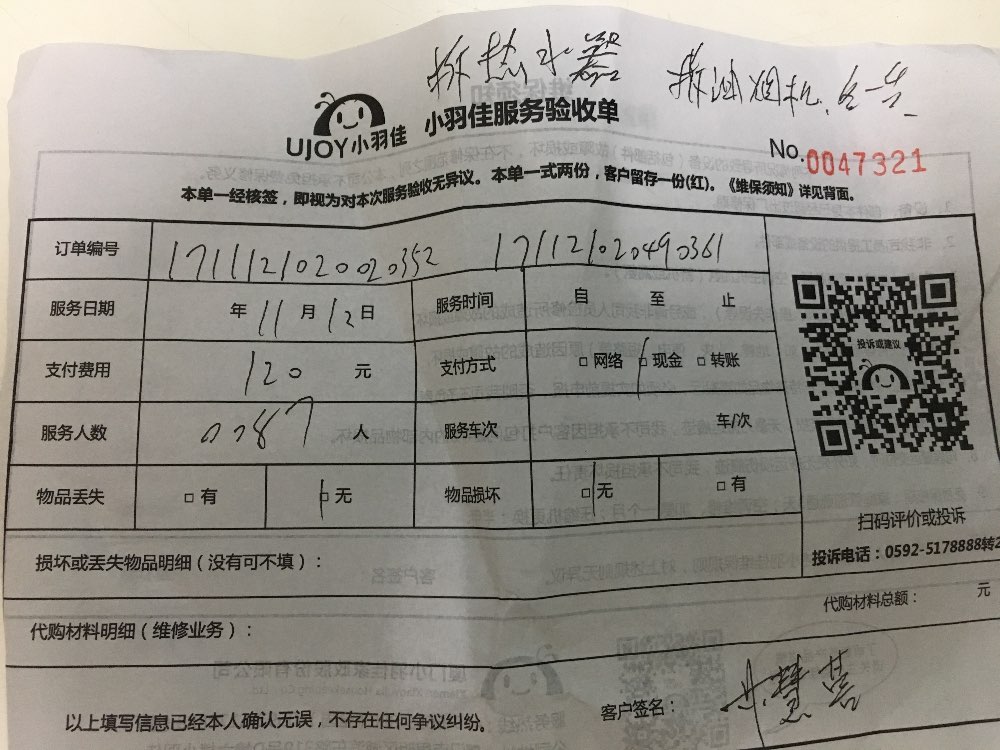 拆热水器 拆油烟机.
UJOY小羽佳 小羽佳服务验收单
No.0047321
本单一经核签，即视为对本次服务验收无异议。本单一式两份，客户留存一份(红)。《维保须知》详见背面。
订单编号 1711121020020352 171121020490361
服务日期 年 11 月 12 日 服务时间 自 至 止
投诉或建议
支付费用 120 元 支付方式 □网络 □现金 □转账
服务人数 0087 人 服务车次 车/次
物品丢失 □有 □无 物品损坏 □无 □有
扫码评价或投诉
投诉电话：0592-5178888转2
损坏或丢失物品明细（没有可不填）：
代购材料总额： 元
代购材料明细（维修业务）：
客户签名：
以上填写信息已经本人确认无误，不存在任何争议纠纷。